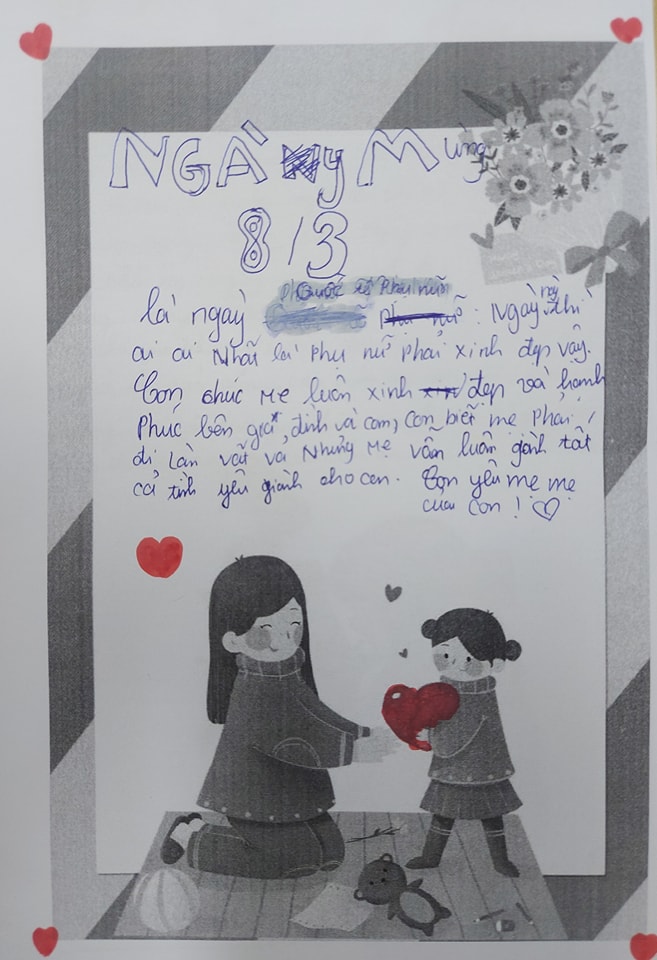 NGÀy Mừng
8/3
là ngày Quốc tế Phụ nữ : Ngày này thì
ai ai Nhất là phụ nữ phải xinh đẹp vậy.
Con chúc mẹ luôn xinh đẹp và hạnh
Phúc bên gia đình và con, Con biết mẹ phải
đi làn vất vả Nhưng mẹ vẫn luôn giành tất
cả tình yêu giành cho con. Con yêu mẹ mẹ
của con !